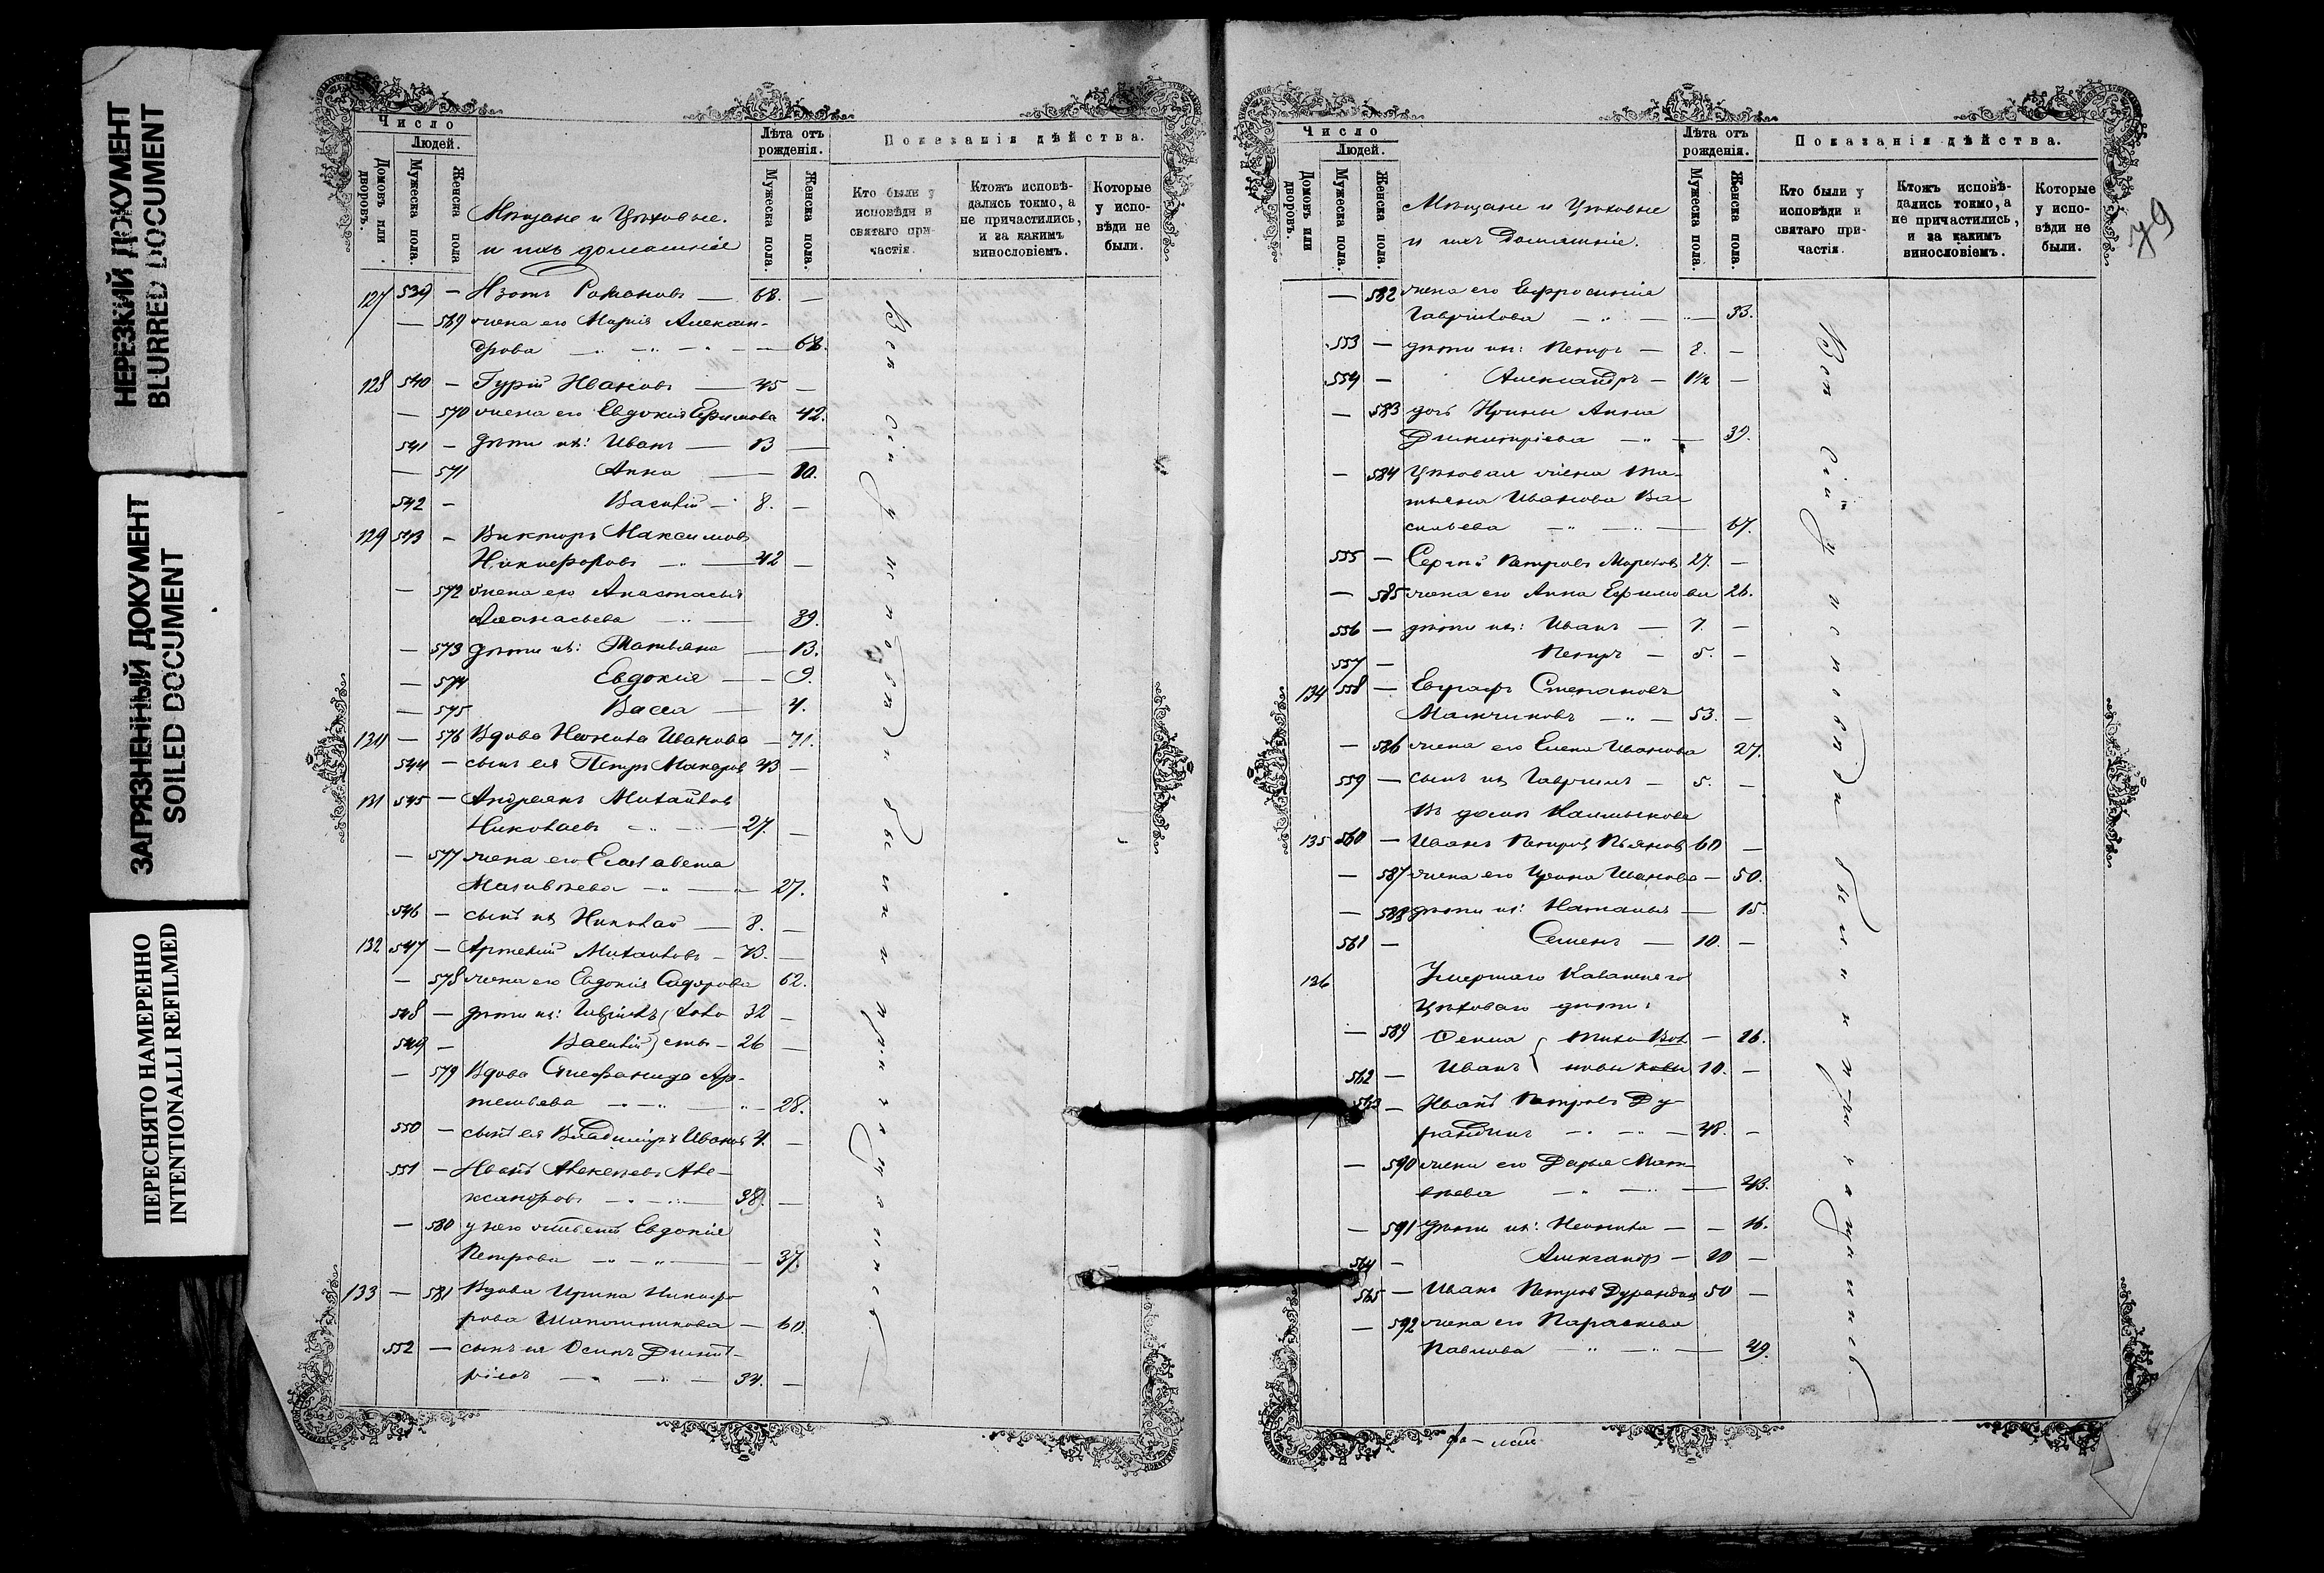 НЕРЕЗКИЙ ДОКУМЕНТ
BLURRED DOCUMENT
ЗАГРЯЗНЕННЫЙ ДОКУМЕНТ
SOILED DOCUMENT
ПЕРЕСНЯТО НАМЕРЕННО
INTENTIONALLI REFILMED
Число
Людей.
Домовъ или дворовъ.
Мужеска пола.
Женска пола
Мѣщане и Цѣховые.
и ихъ домашніе
Лѣта отъ рожденія.
Мужеска пола.
Женска пола.
Показанія дѣйства.
Кто были у исповѣди и святаго причастія.
Ктожъ исповѣдались токмо, а не причастились, и за какимъ винословіемъ.
Которые у исповѣди не были.
127 539 — Изотъ Романовъ — 68. —
— 569 жена его Марія Алексан-
дрова — 68.
128 540 — Гурій Ивановъ — 45 —
— 570 жена его Евдокія Ефимова 42.
541 — дѣти ихъ: Иванъ — 13 —
— 571 Анна — 10.
542 — Василій — 8. —
129 543 — Викторъ Максимовъ
Никифоровъ — 42 —
— 572 жена его Анастасья
Аѳанасьева — 39.
— 573 дѣти ихъ: Татьяна — 13.
— 574 Евдокія — 9.
— 575 Васса — 4.
— 576 Вдова Неонила Иванова — 71.
544 — сынъ ея Петръ Макаровъ 43 —
131 545 — Андреянъ Михайловъ
Николаевъ — 27. —
— 577 жена его Елизавета
Матвѣева — 27.
546 — сынъ ихъ Николай — 8. —
132 547 — Артемій Михайловъ — 73. —
— 578 жена его Евдокія Сидорова 62.
548 — дѣти ихъ: Гавріилъ холо 32 —
549 — Василій сты — 26 —
— 579 Вдова Стефанида Ар-
темьева — 28.
550 — сынъ ея Владиміръ Ивановъ 4. —
551 — Иванъ Алексѣевъ Але-
ксандровъ — 38. —
— 580 у него Евдокія
Петрова — 37.
133 — 581 Вдова Ирина Никифо-
рова Шапошникова — 60.
552 — сынъ ея Осипъ Димит-
ріевъ — 34. —
Всѣ сіи у исповѣди были и пріощались
Число
Людей.
Домовъ или дворовъ.
Мужеска пола.
Женска пола.
Мѣщане и Цѣховые
и ихъ Домашніе.
Лѣта отъ рожденія.
Мужеска пола.
Женска пола.
Показанія дѣйства.
Кто были у исповѣди и святаго причастія.
Ктожъ исповѣдались токмо, а не причастились, и за какимъ винословіемъ.
Которые у исповѣди не были.
79
— 582 жена его Ефросинія
Гаврилова — 33.
553 — дѣти ихъ: Петръ — 8. —
554 — Александръ — 1½ —
— 583 дочь Ирины Анна
Димитріева — 39.
— 584 Цѣховая жена Та-
тьяна Иванова Ва-
сильева — 67.
555 — Сергѣй Петровъ 27. —
— 585 жена его Анна Ефимова 26.
556 — дѣти ихъ: Иванъ — 7. —
557 — Петръ — 5. —
134 558 — Евграфъ Степановъ
— 53. —
— 586 жена его Елена Иванова 27.
559 — сынъ ихъ Гавріилъ — 5. —
Въ домѣ Калмыкова
135 560 — Иванъ Петровъ Пьяновъ 60 —
— 587 жена его Ирина Иванова — 50.
— 588 дѣти ихъ: Наталья — 15.
561 — Семенъ — 10. —
136 Умершаго
Цѣховаго дѣти:
— 589 — 16.
562 — Иванъ 10. —
563 — Иванъ Петровъ Ду-
рандинъ — 48. —
— 590 жена его Дарья Мат-
вѣева — 43.
— 591 дѣти ихъ: Неонила — — 16.
564 — Александръ — 10 —
565 — Иванъ Петровъ Дурандинъ 50 —
— 592 жена его Параскева
Павлова — 49.
Всѣ сіи у исповѣди были и пріощались